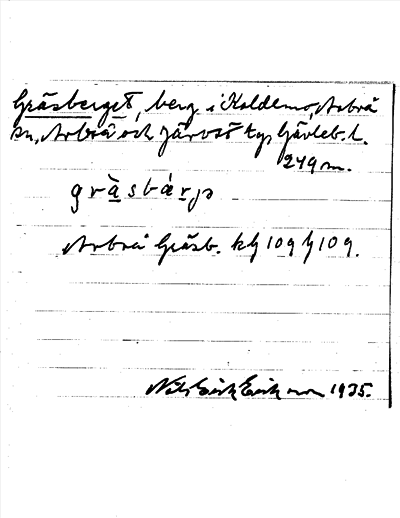 Gräsberget, berg i Koldemo, Arbrå
sn, Arbrå och Järvsö tg, Gävleb. l.
249 m.
gràsbárjs
Arbrå Gräsb. kb 109 h 109.
Nils Erik Eriksson 1935.